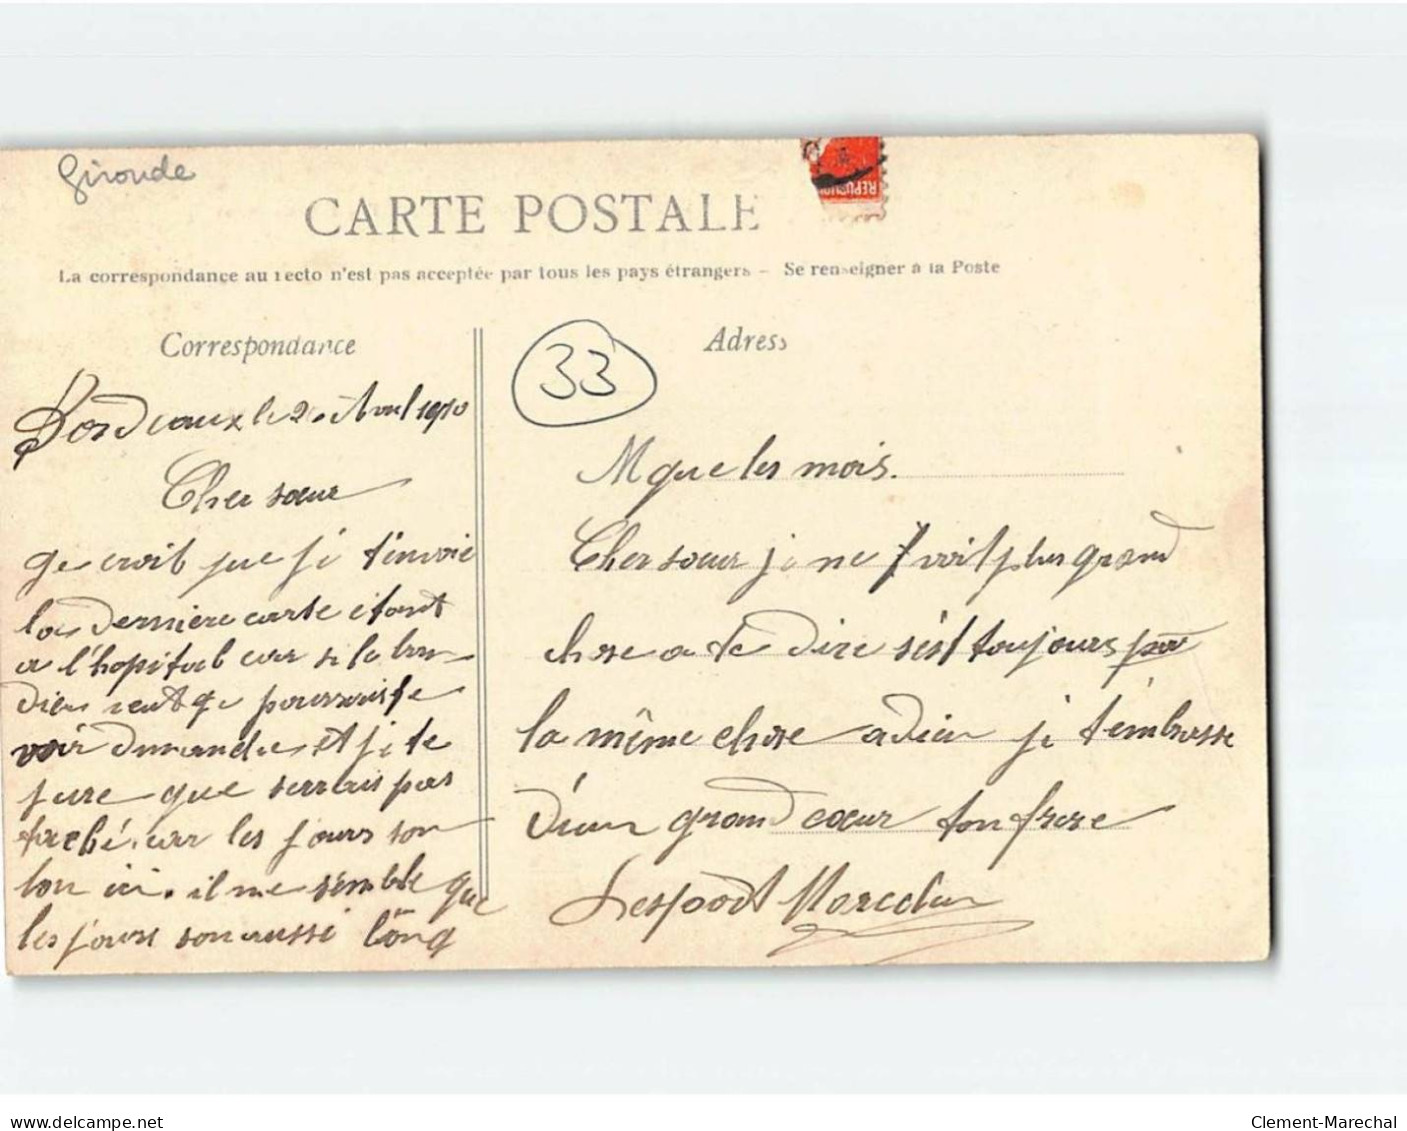 Gironde
REPUB
CARTE POSTALE
La correspondance au recto n'est pas acceptée par tous les pays étrangers – Se renseigner à la Poste
Correspondance
Adress
33
Bordeaux le 2 Avril 1910
Cher sœur
Je croit que je t'envoie
la dernière carte étant
a l'hopital car si le bon
dieu veut que pourrais je
voir dimanche et je te
jure que serrais pas
faché, car les jours son
lon ici. il me semble que
les jours son aussi long
M que les mois.
Cher sœur je ne voit plus grand
chose a te dire sést toujours par
la même chose adieu je témbrasse
d'un grand cœur ton frere
Despodt Marcelin
www.delcampe.net
Clement-Marechal